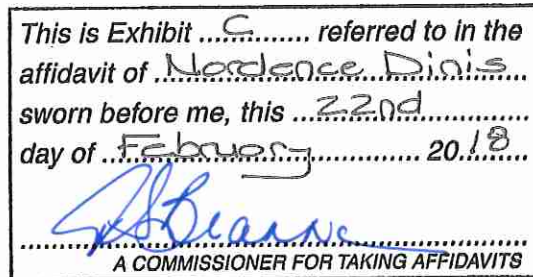 This is Exhibit ....C........ referred to in the
affidavit of ..Nordence Dinis..
sworn before me, this ....22nd....
day of ..February.............. 20.18
A COMMISSIONER FOR TAKING AFFIDAVITS